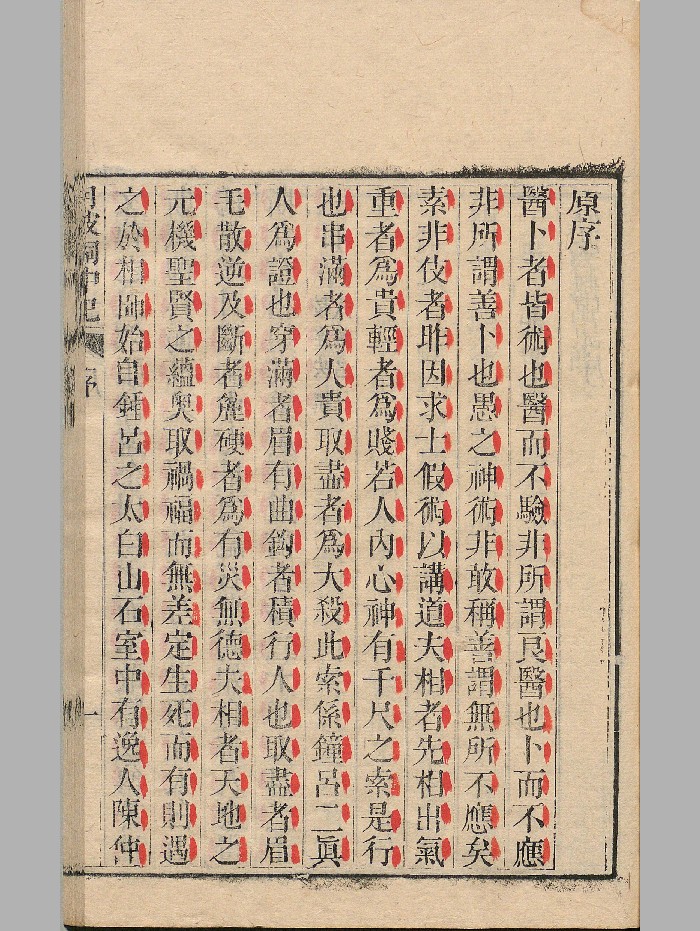 原序
醫卜者皆術也醫而不驗非所謂良醫也卜而不應
非所謂善卜也愚之神術非敢稱善謂無所不應矣
素非伎者昨因求士假術以講道夫相者先相出氣
重者爲貴輕者爲賤若人内心神有千尺之索是行
也串滿者爲大貴取盡者爲大殺此索係鐘呂二眞
人爲證也穿滿者眉有曲鈎者積行人也取盡者眉
毛散逆及斷者麄硬者爲有災無德夫相者天地之
元機聖賢之蘊奥取禍福而無差定生死而有則遇
之於相師始自鍾呂之太白山石室中有逸人陳仲
月波洞中記 序 一